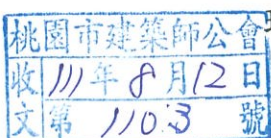 桃園市建築師公會
收 111年8月12日
文 第 1103 號